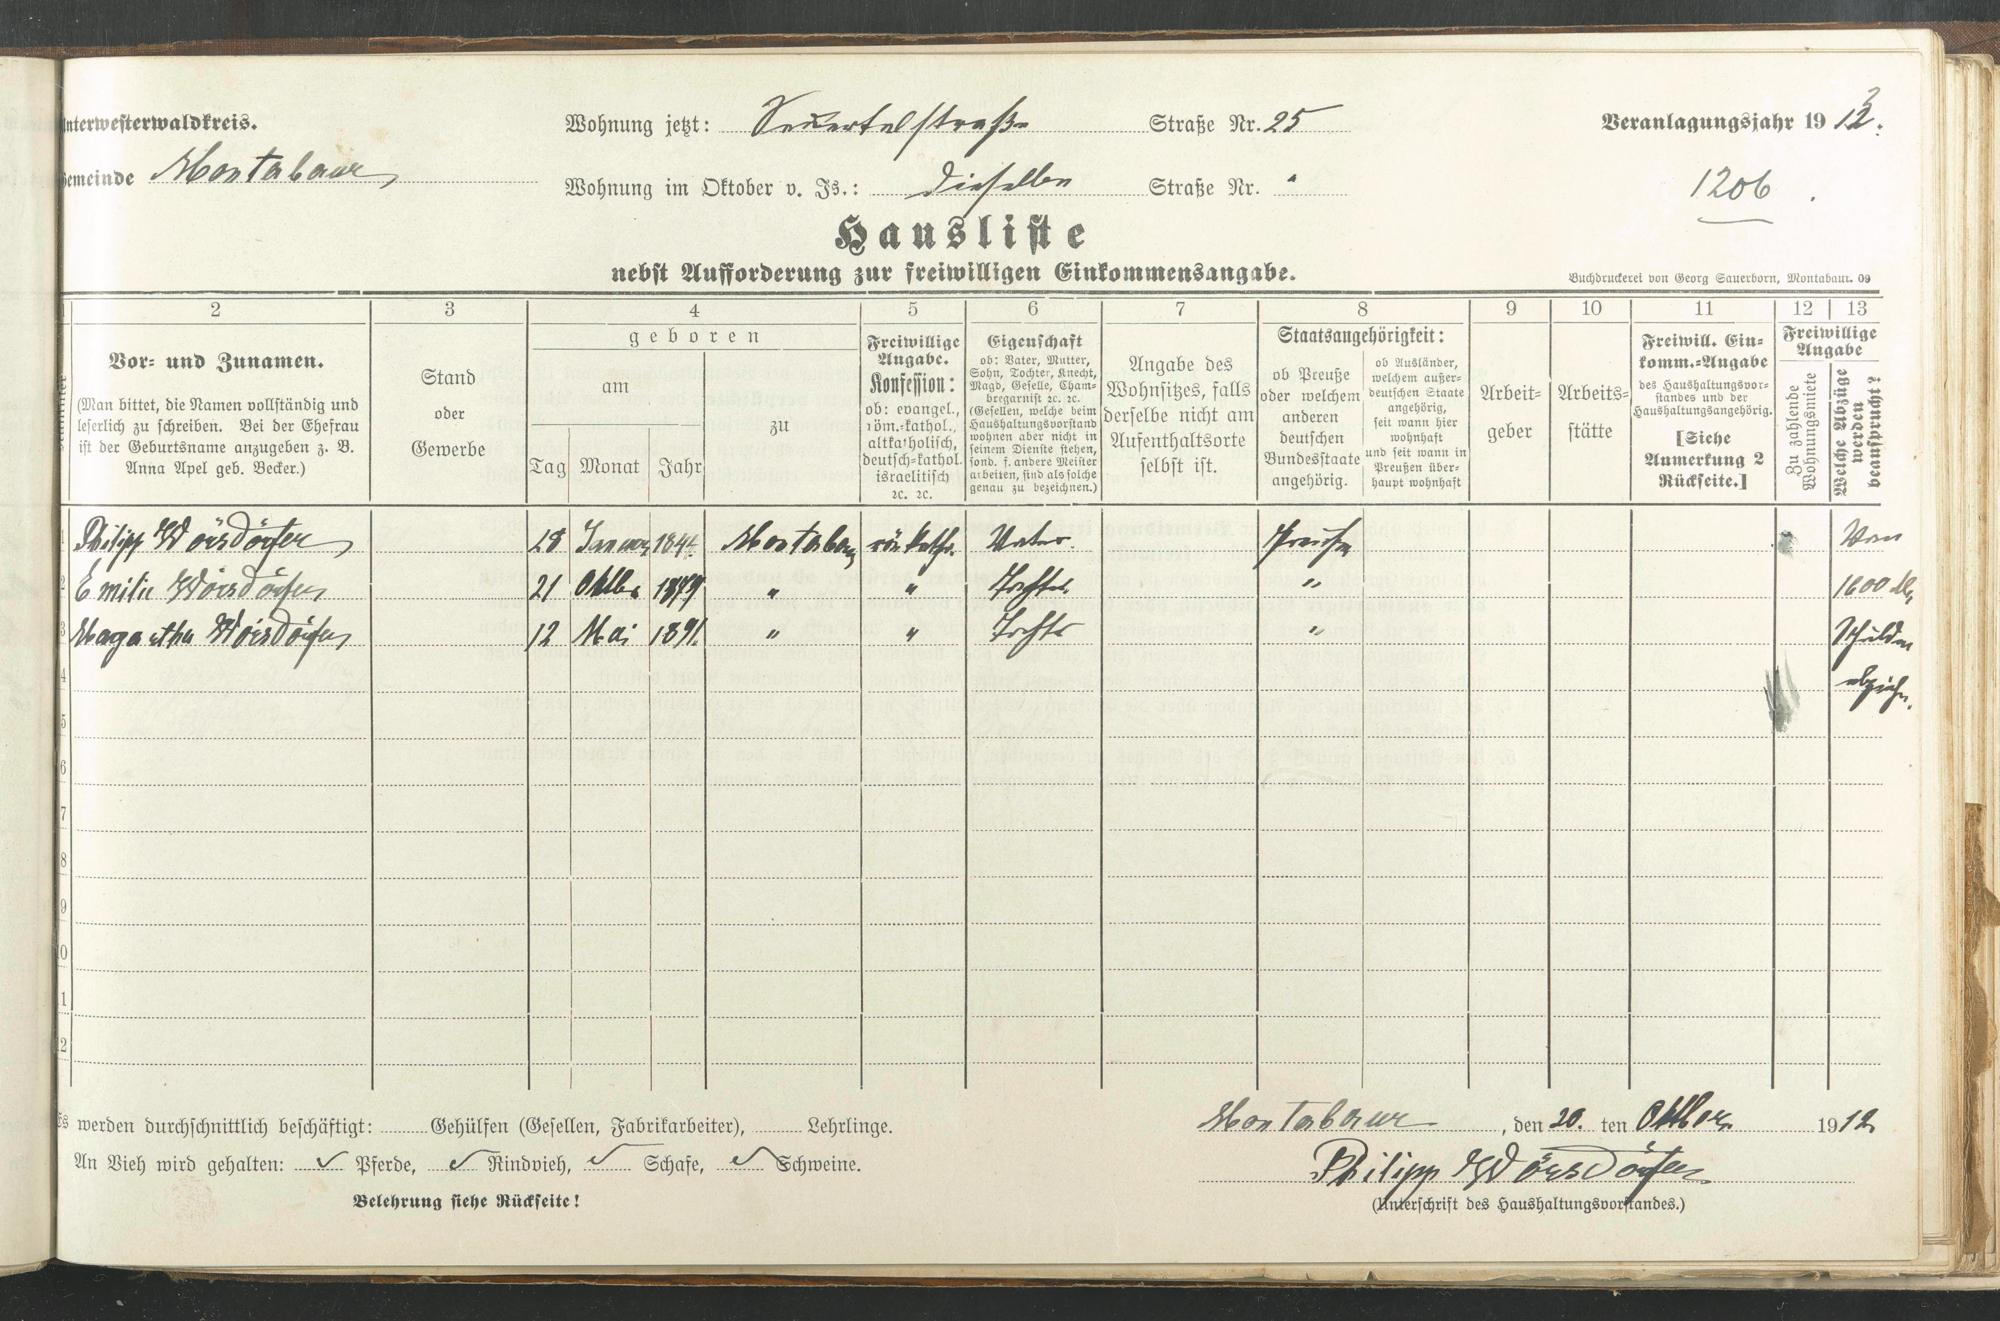 Unterwesterwaldkreis.
Gemeinde Montabaur
Wohnung jetzt: Sauertalstraße Straße Nr. 25
Wohnung im Oktober v. Js.: dieselbe Straße Nr. "
Veranlagungsjahr 1913.
1206.
Hausliste
nebst Aufforderung zur freiwilligen Einkommensangabe.
Buchdruckerei von Georg Sauerborn, Montabaur. 09
1 2 3 4 5 6 7 8 9 10 11 12 13
Vor- und Zunamen.
(Man bittet, die Namen vollständig und
leserlich zu schreiben. Bei der Ehefrau
ist der Geburtsname anzugeben z. B.
Anna Apel geb. Becker.)
Stand
oder
Gewerbe
geboren
am
zu
Tag Monat Jahr
Freiwillige
Angabe.
Konfession:
ob: evangel.,
röm.-kathol.,
altkatholisch,
deutsch-kathol.
israelitisch
ꝛc. ꝛc.
Eigenschaft
ob: Vater, Mutter,
Sohn, Tochter, Knecht,
Magd, Geselle, Cham-
bregarnist ꝛc. ꝛc.
(Gesellen, welche beim
Haushaltungsvorstand
wohnen aber nicht in
seinem Dienste stehen,
sond. f. andere Meister
arbeiten, sind als solche
genau zu bezeichnen.)
Angabe des
Wohnsitzes, falls
derselbe nicht am
Aufenthaltsorte
selbst ist.
Staatsangehörigkeit:
ob Preuße
oder welchem
anderen
deutschen
Bundesstaate
angehörig.
ob Ausländer,
welchem außer-
deutschen Staate
angehörig,
seit wann hier
wohnhaft
und seit wann in
Preußen über-
haupt wohnhaft
Arbeit-
geber
Arbeits-
stätte
Freiwill. Ein-
komm.-Angabe
des Haushaltungsvor-
standes und der
Haushaltungsangehörig.
[Siehe
Anmerkung 2
Rückseite.]
Freiwillige
Angabe
Zu zahlende
Wohnungsmiete
Welche Abzüge
werden
beansprucht?
1 Philipp Wörsdörfer 28 Januar 1844. Montabaur röm kathl. Vater. Preuße Von
2 Emilie Wörsdörfer 21 Oktbr 1879 " " Tochter. " 1600 M.
3 Magaretha Wörsdörfer 12 Mai 1891. " " Tochter " Schulden
4 abziehn.
5
6
7
8
9
10
11
12
Es werden durchschnittlich beschäftigt: Gehülfen (Gesellen, Fabrikarbeiter), Lehrlinge.
An Vieh wird gehalten: Pferde, Rindvieh, Schafe, Schweine.
Belehrung siehe Rückseite!
Montabaur, den 20. ten Oktber. 1912
Philipp Wörsdörfer
(Unterschrift des Haushaltungsvorstandes.)